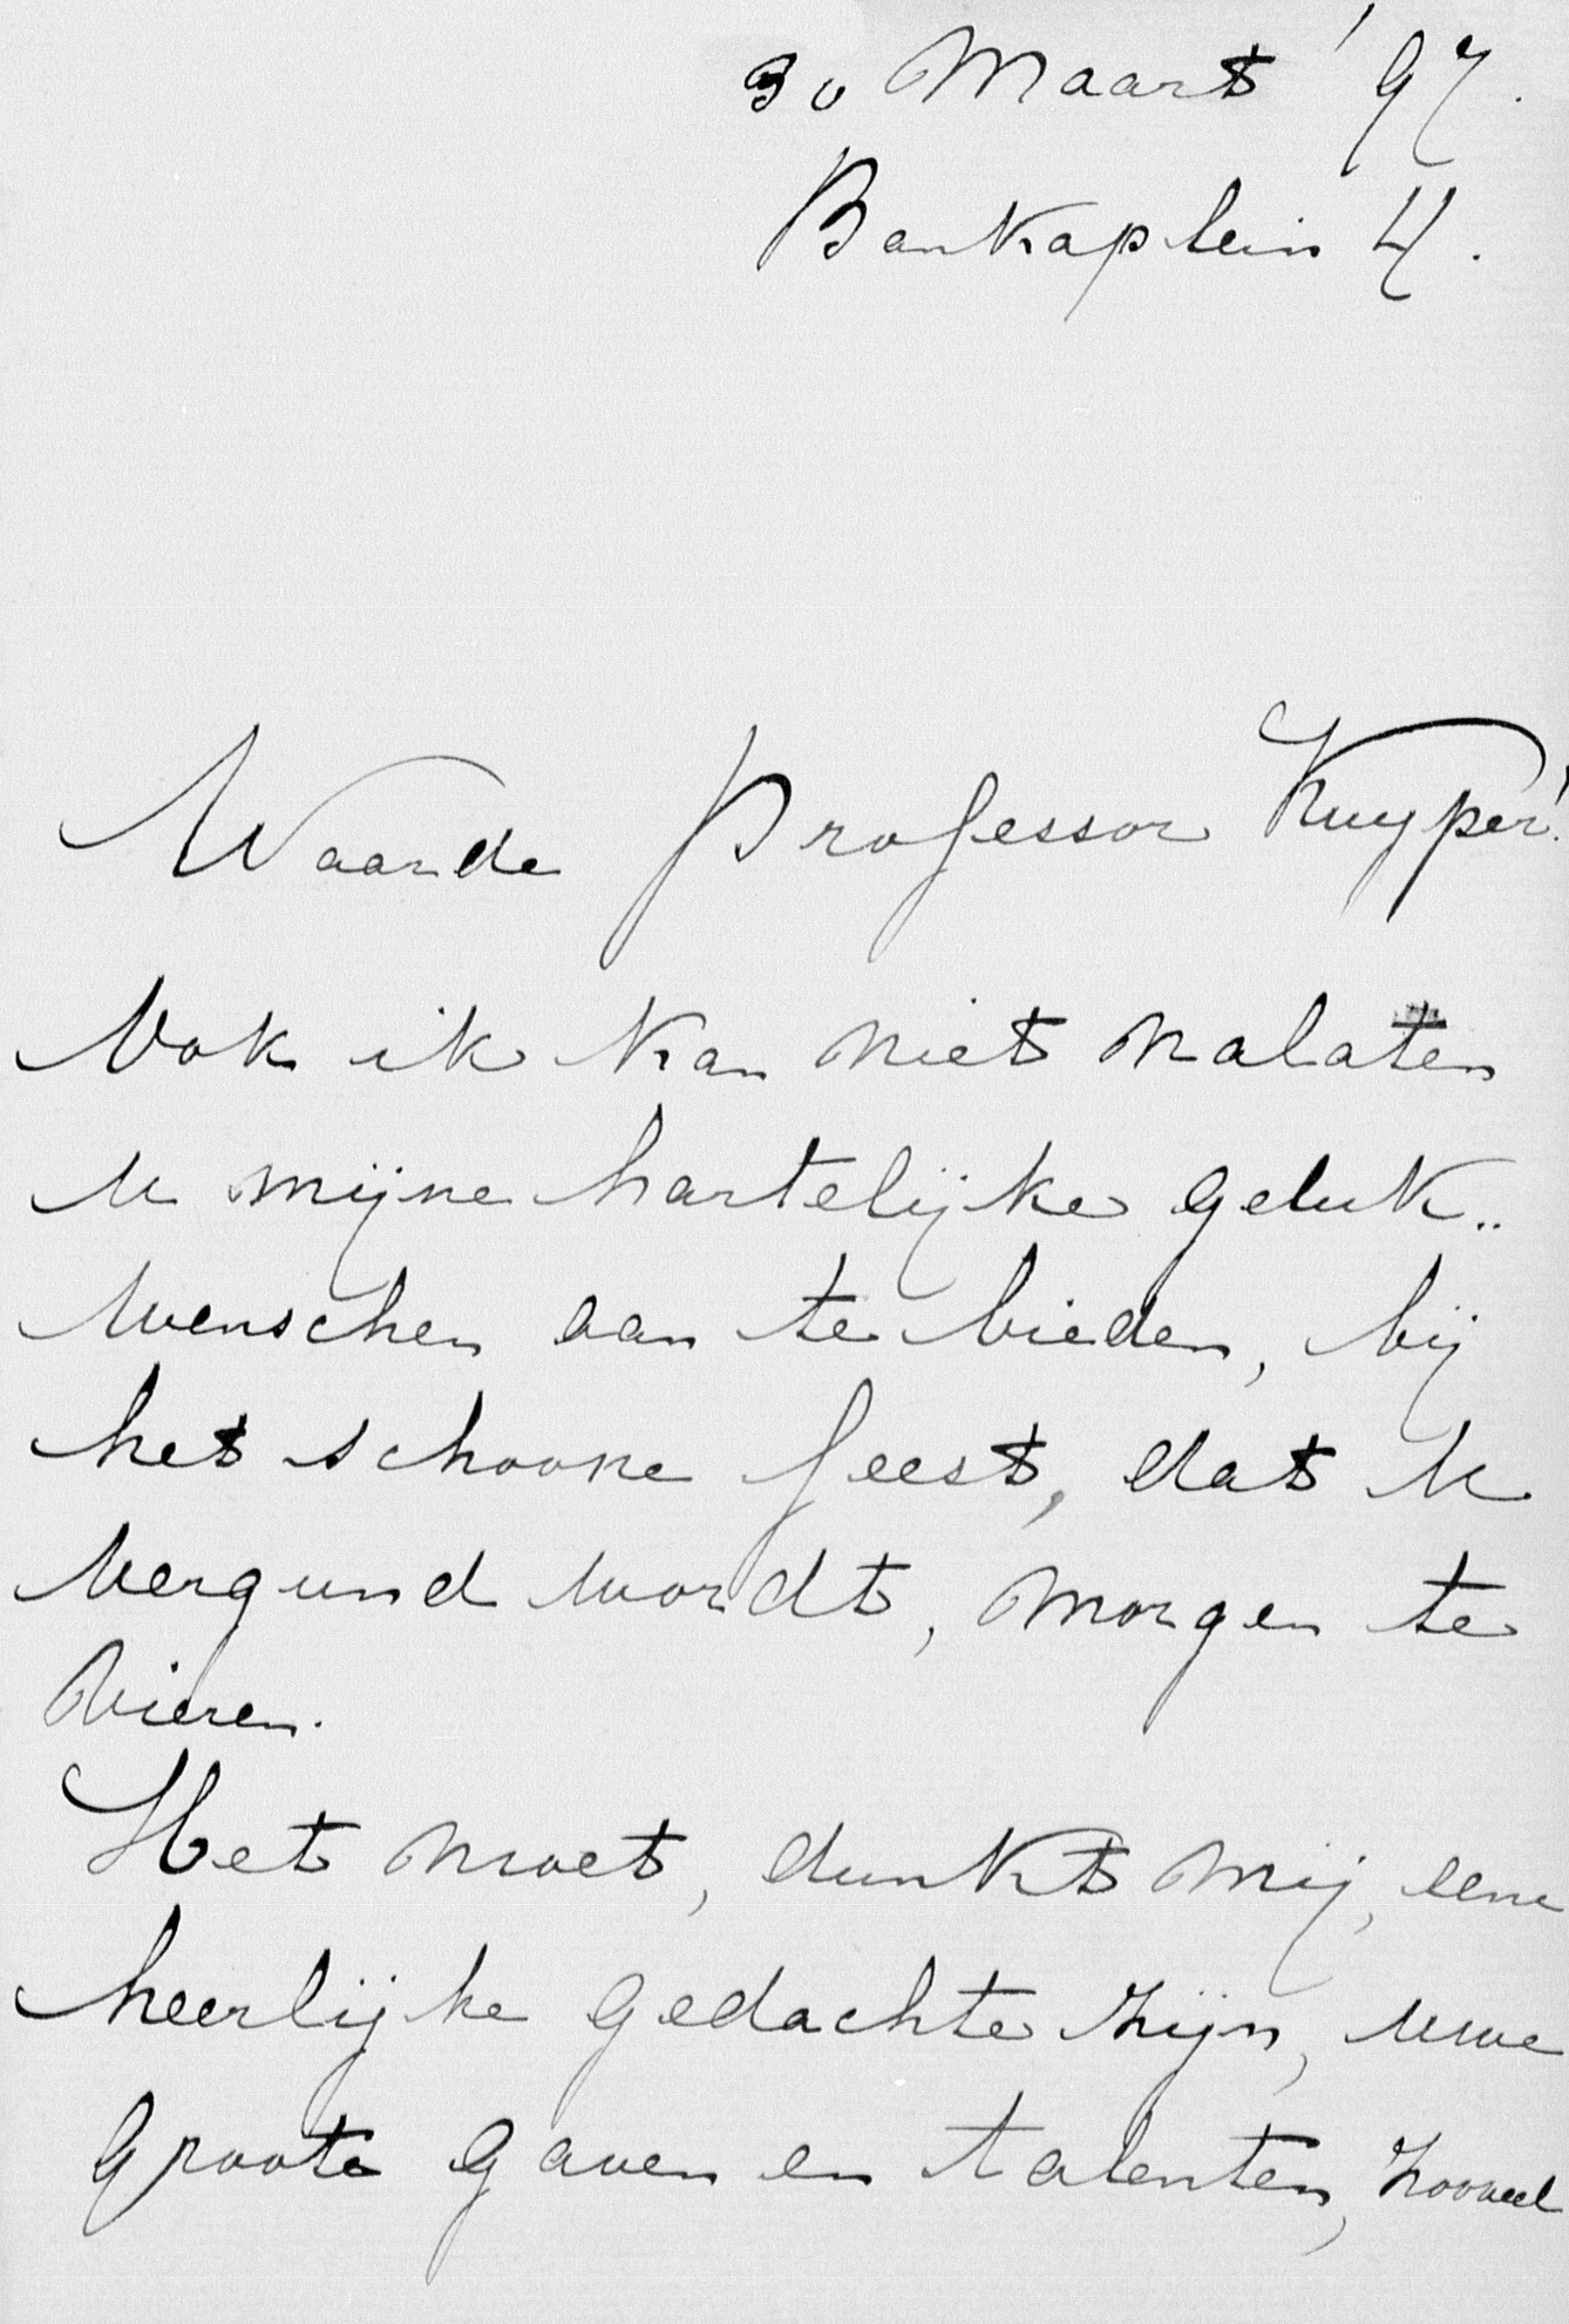 30 Maart '97.
Bankaplein 4.
Waarde Professor Kuyper!
Ook ik kan niet nalaten
U mijne hartelijke geluk..
wenschen aan te bieden, bij
het schoone feest, dat U
vergund wordt, morgen te
vieren.
Het moet, dunkt mij, eene
heerlijke gedachte zijn, uwe
groote gaven en talenten, zooveel